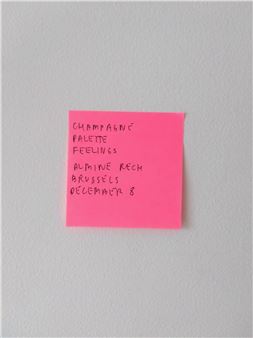 CHAMPAGNE
PALETTE
FEELINGS
ALMINE RECH
BRUSSELS
DECEMBER 8